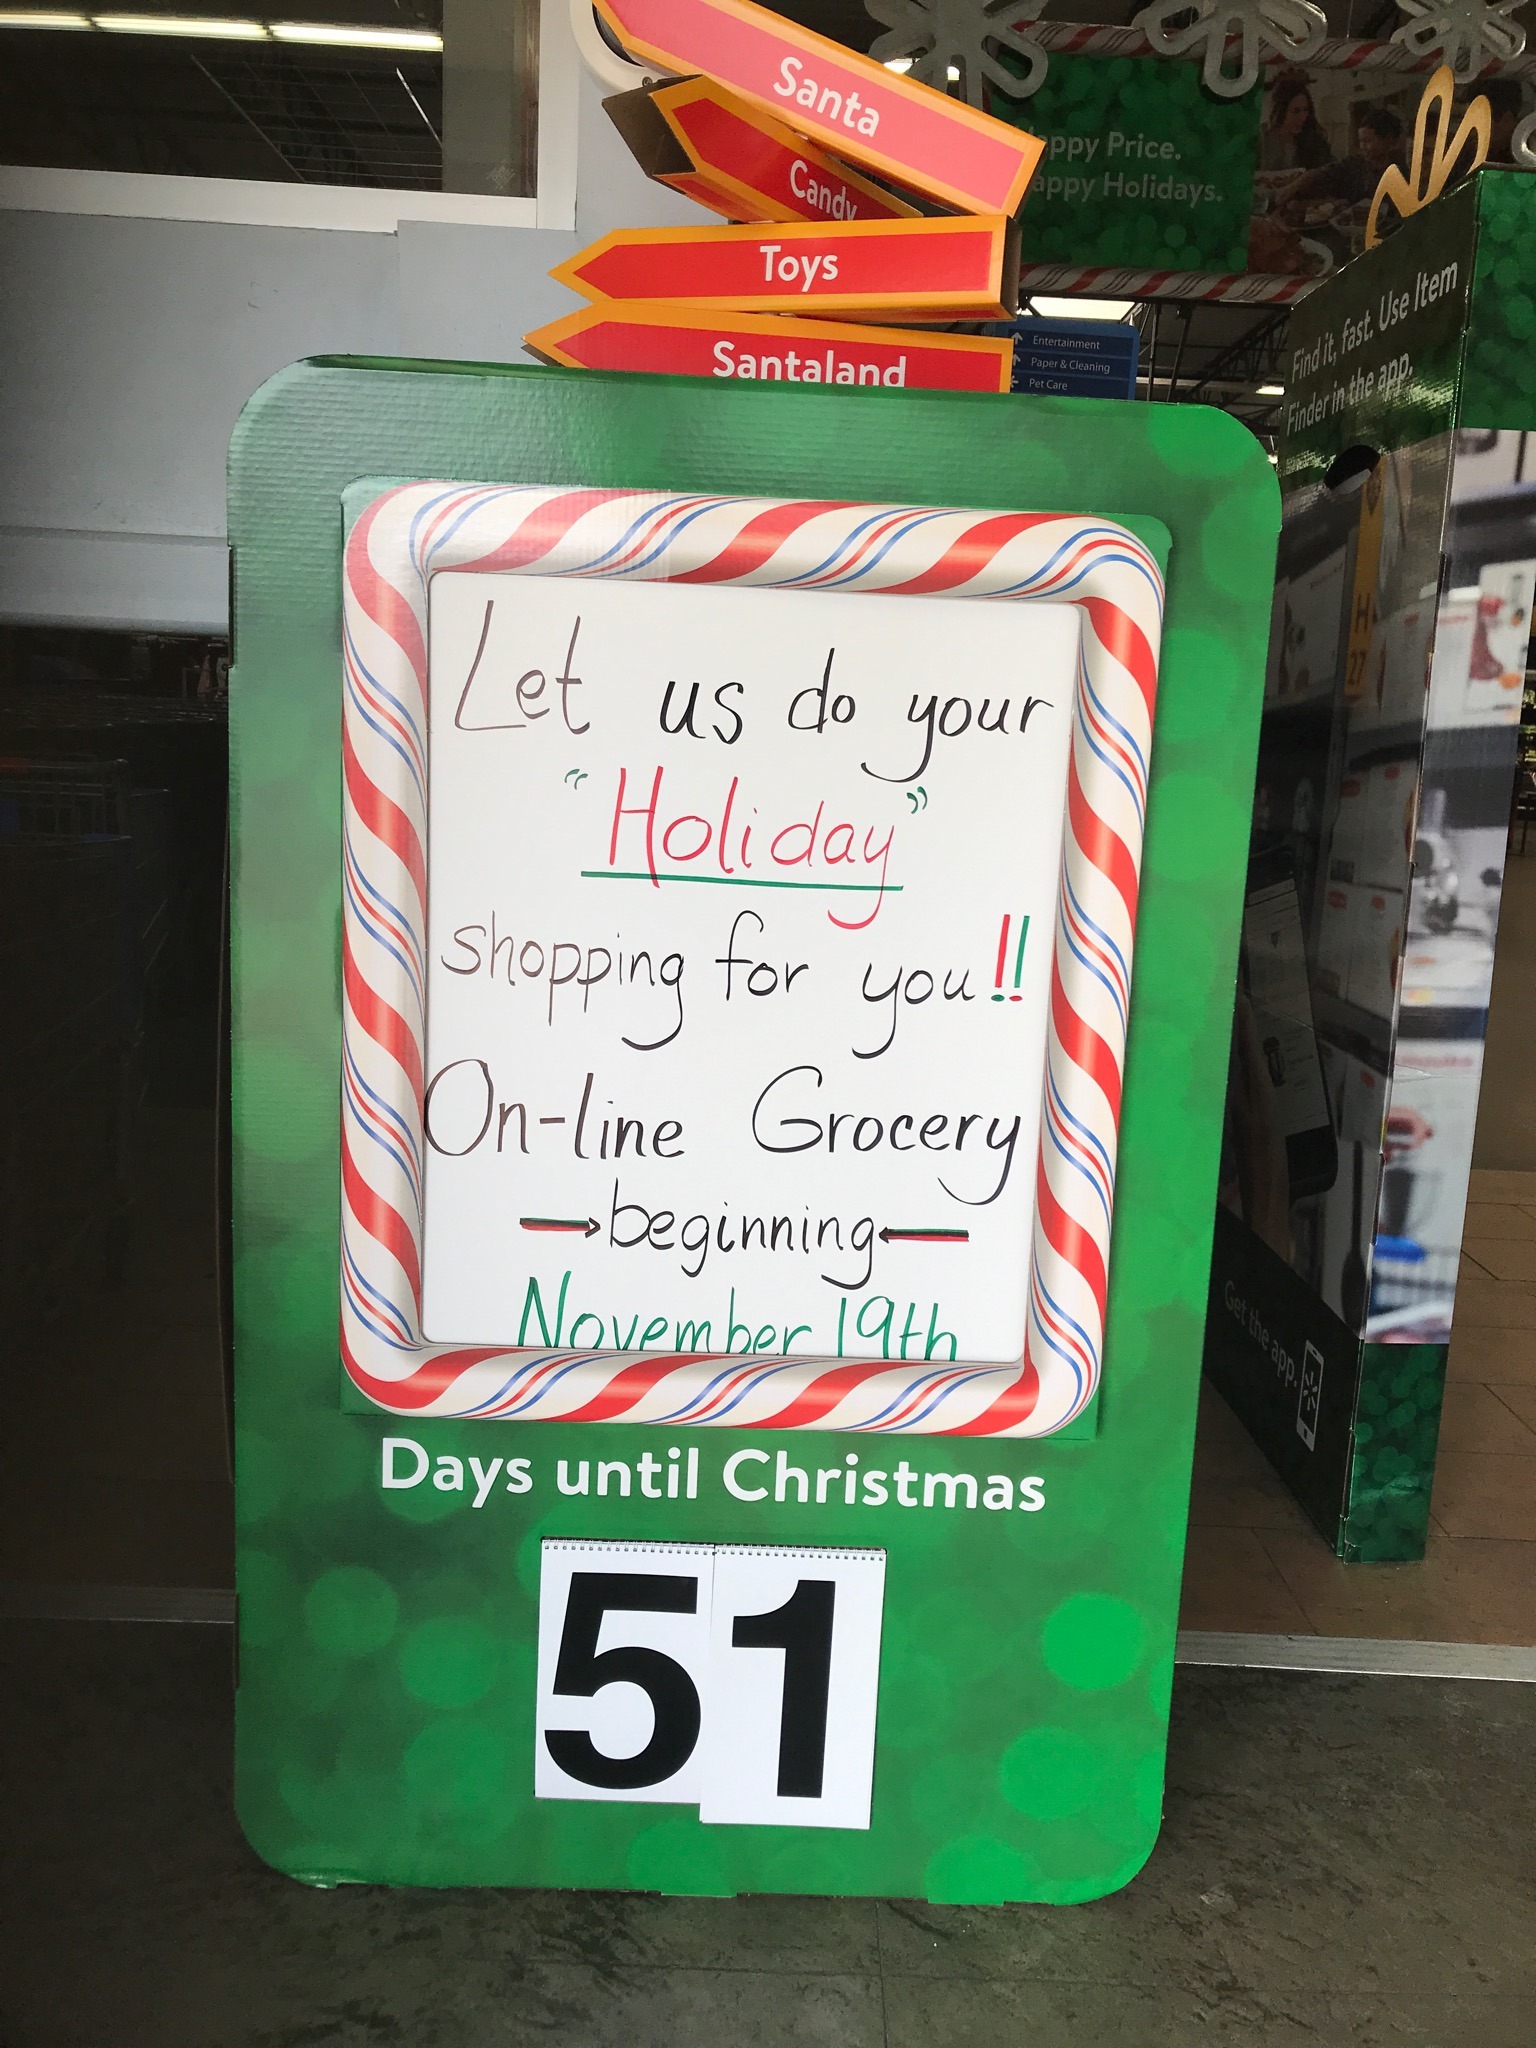 Santa
Candy
Toys
Santaland
appy Price.
appy Holidays.
Entertainment
Paper & Cleaning
Pet Care
Find it, fast. Use Item
Finder in the app.
H
27
Get the app.
Let us do your
“Holiday”
shopping for you!!
On-line Grocery
→beginning←
November 19th
Days until Christmas
51